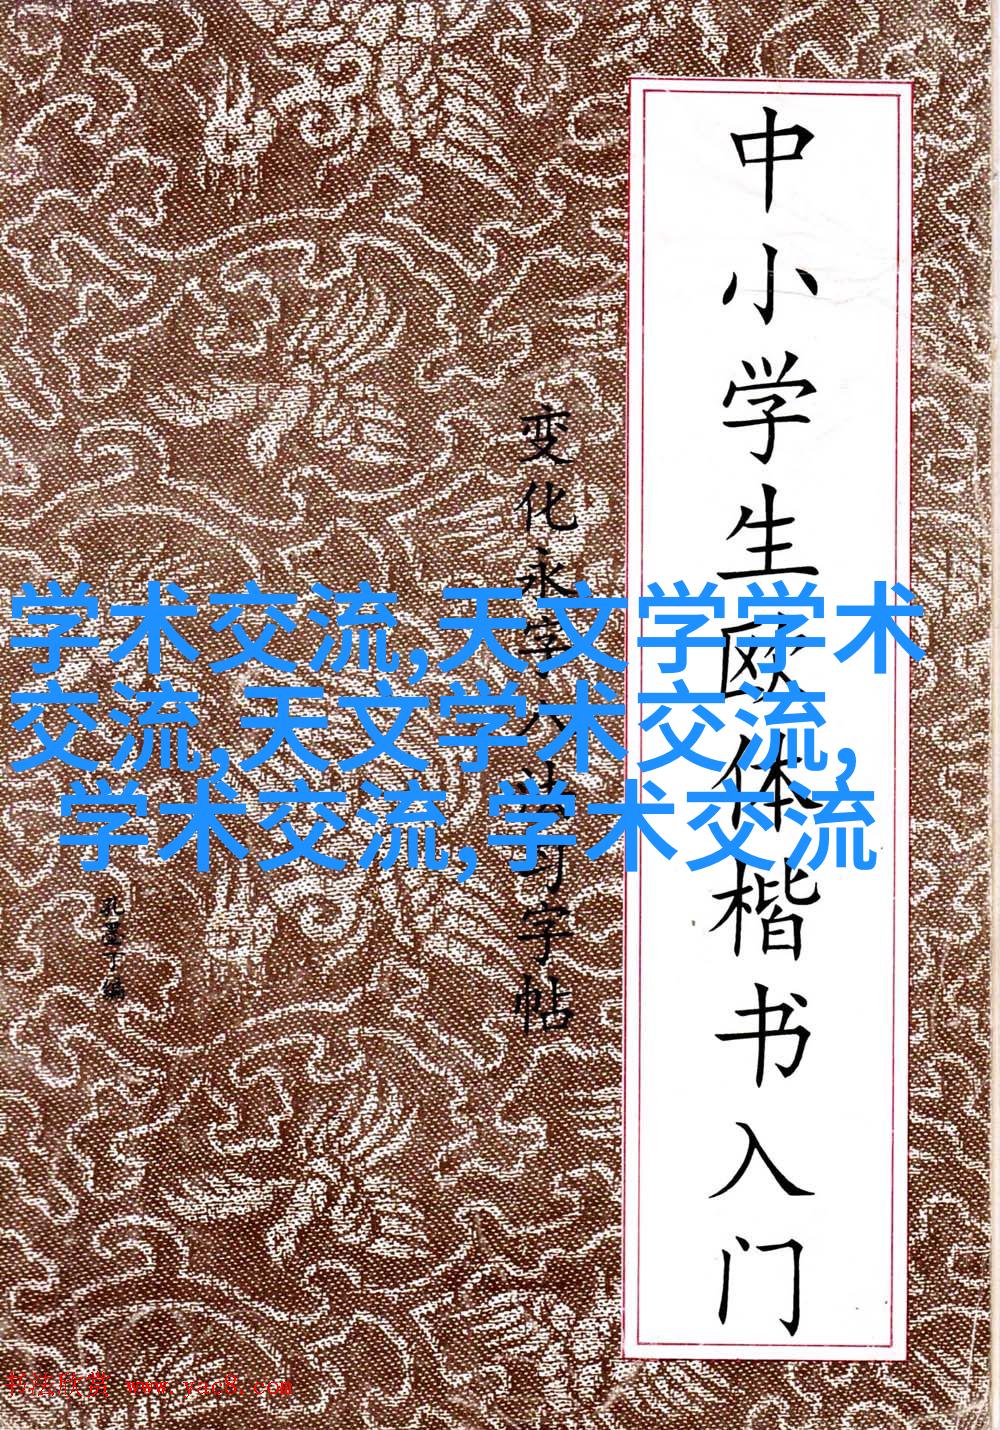 中小学生欧体楷书入门
变化永字八法习字帖
孔墨丁编
学术交流,天文学学术
交流,天文学术交流,
学术交流,学术交流
书法欣赏 www.yac8.com